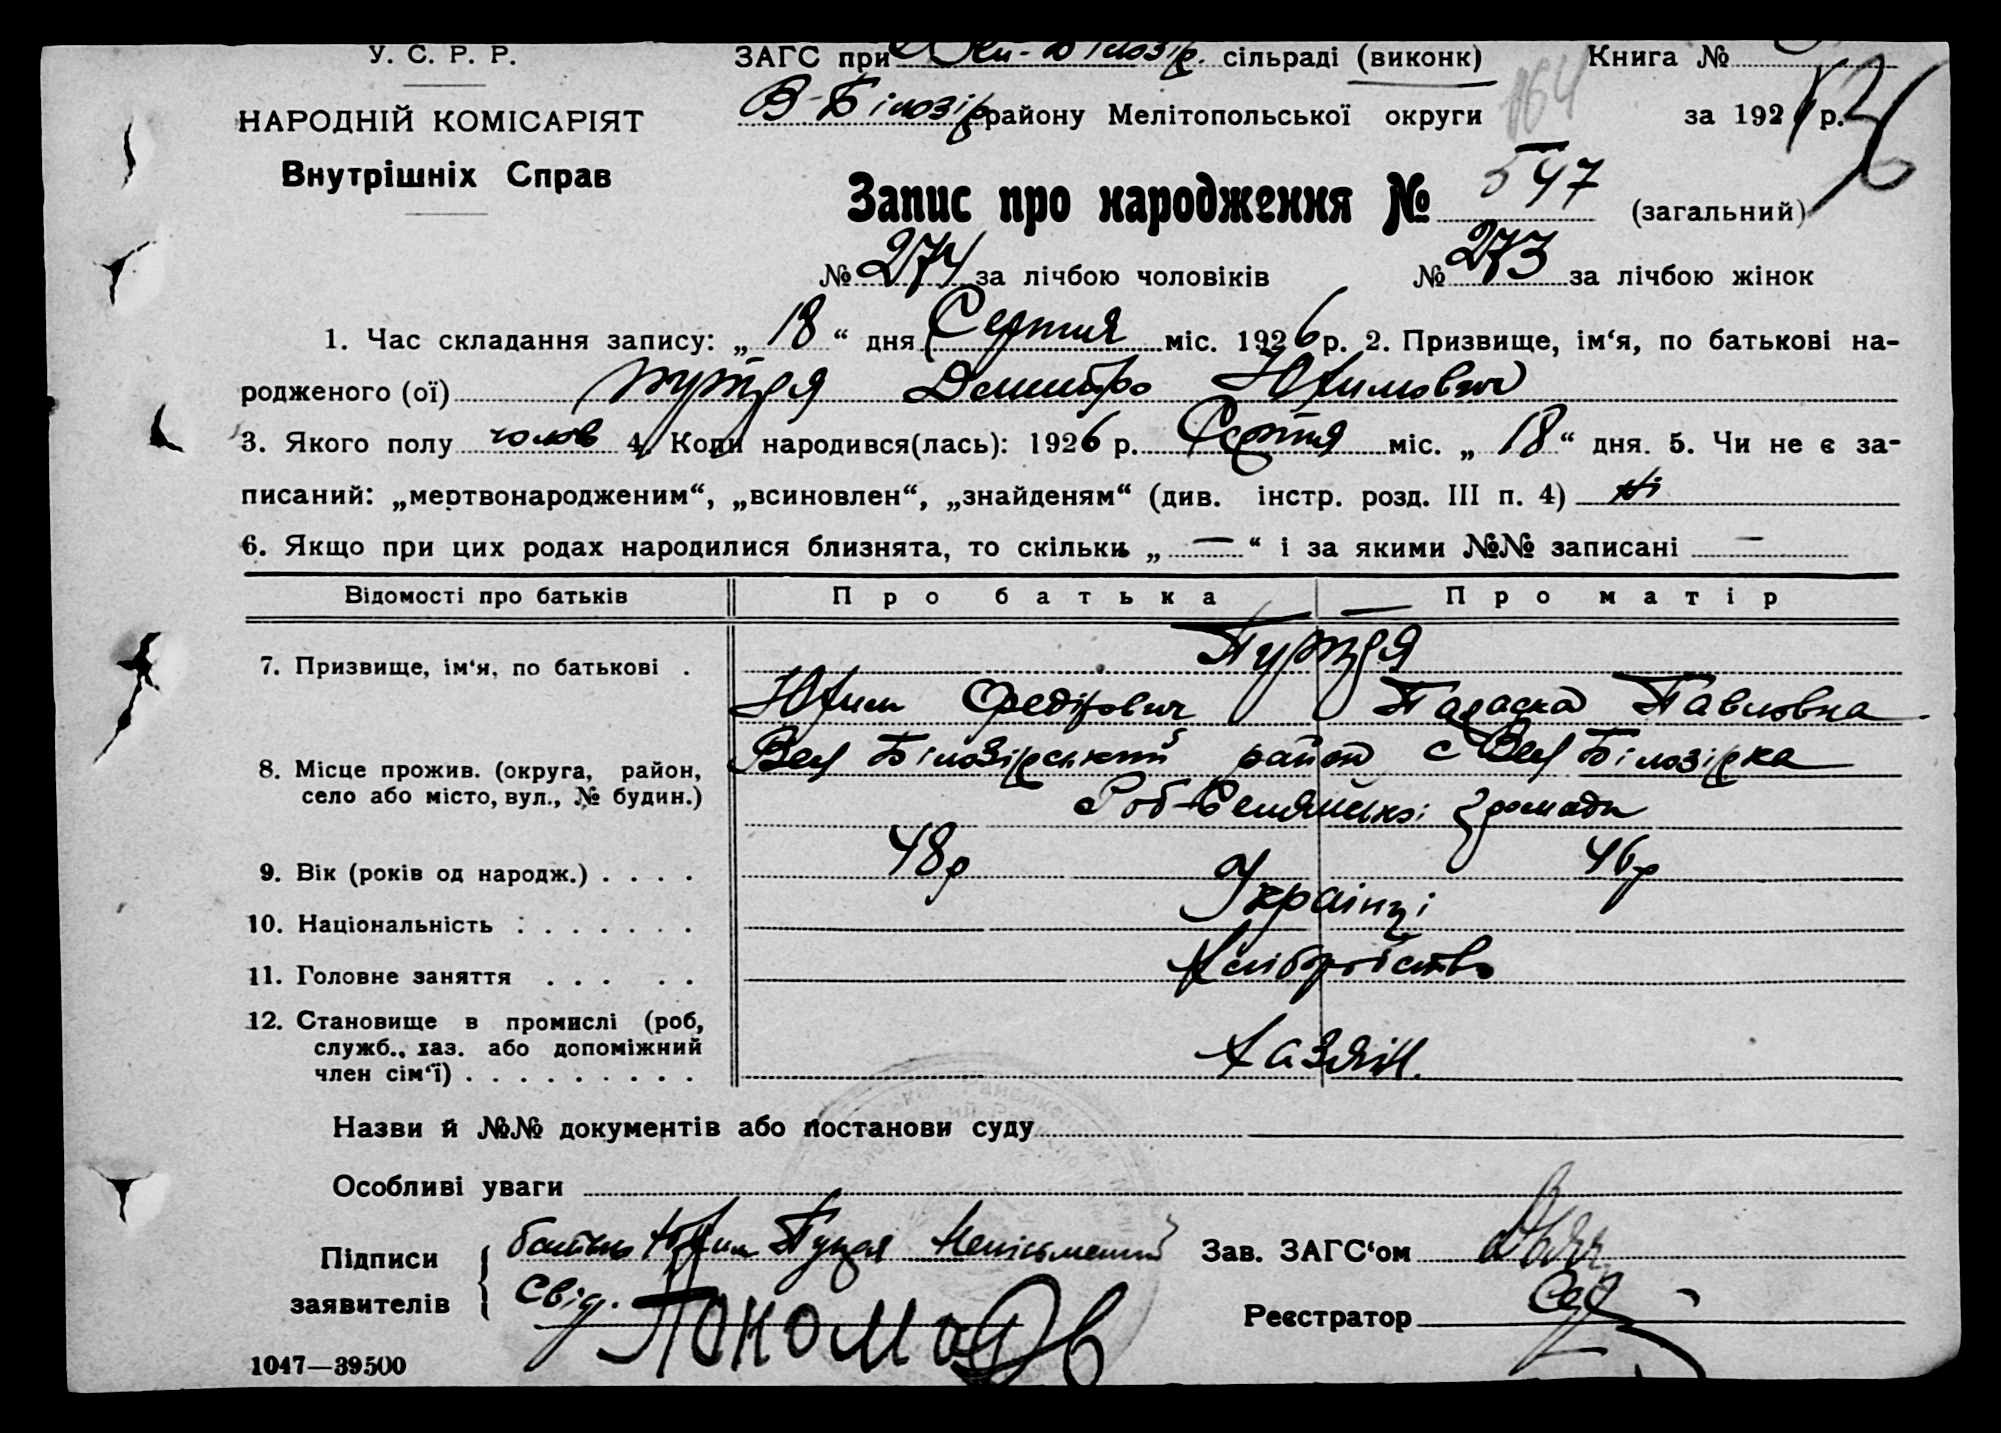 У. С. Р. Р.
НАРОДНІЙ КОМІСАРІЯТ
Внутрішніх Справ
ЗАГС при Вел-Білозір. сільраді (виконк) Книга №
В-Білозір району Мелітопольської округи 164 за 1926 р.
Запис про народження № 547 (загальний)
№ 274 за лічбою чоловіків № 273 за лічбою жінок
1. Час складання запису: „ 18 “ дня Серпня міс. 1926 р. 2. Призвище, ім‘я, по батькові на-
родженого (ої) Дмитро Юхимович
3. Якого полу чолов 4. Коли народився(лась): 1926 р. Серпня міс. „ 18 “ дня. 5. Чи не є за-
писаний: „мертвонародженим“, „всиновлен“, „знайденям“ (див. інстр. розд. III п. 4) ні
6. Якщо при цих родах народилися близнята, то скільки „ — “ і за якими №№ записані —
Відомості про батьків Про батька Про матір
7. Призвище, ім‘я, по батькові .
Юхим Федірович Параска Павловна
8. Місце прожив. (округа, район,
село або місто, вул., № будин.)
Вел Білозірський район с Вел Білозірка
Роб-Селянської громади
9. Вік (років од народж.) . . . . 48р 46р
10. Національність . . . . . . . Українці
11. Головне заняття . . . . . Хліборобство
12. Становище в промислі (роб,
служб., хаз. або допоміжний
член сім‘ї) . . . . . . . . . Хазяїн.
Назви й №№ документів або постанови суду
Особливі уваги
Підписи
заявителів
батько Юхим неписьменний
Свід. Пономарьов
Зав. ЗАГС‘ом
Реєстратор
1047—39500